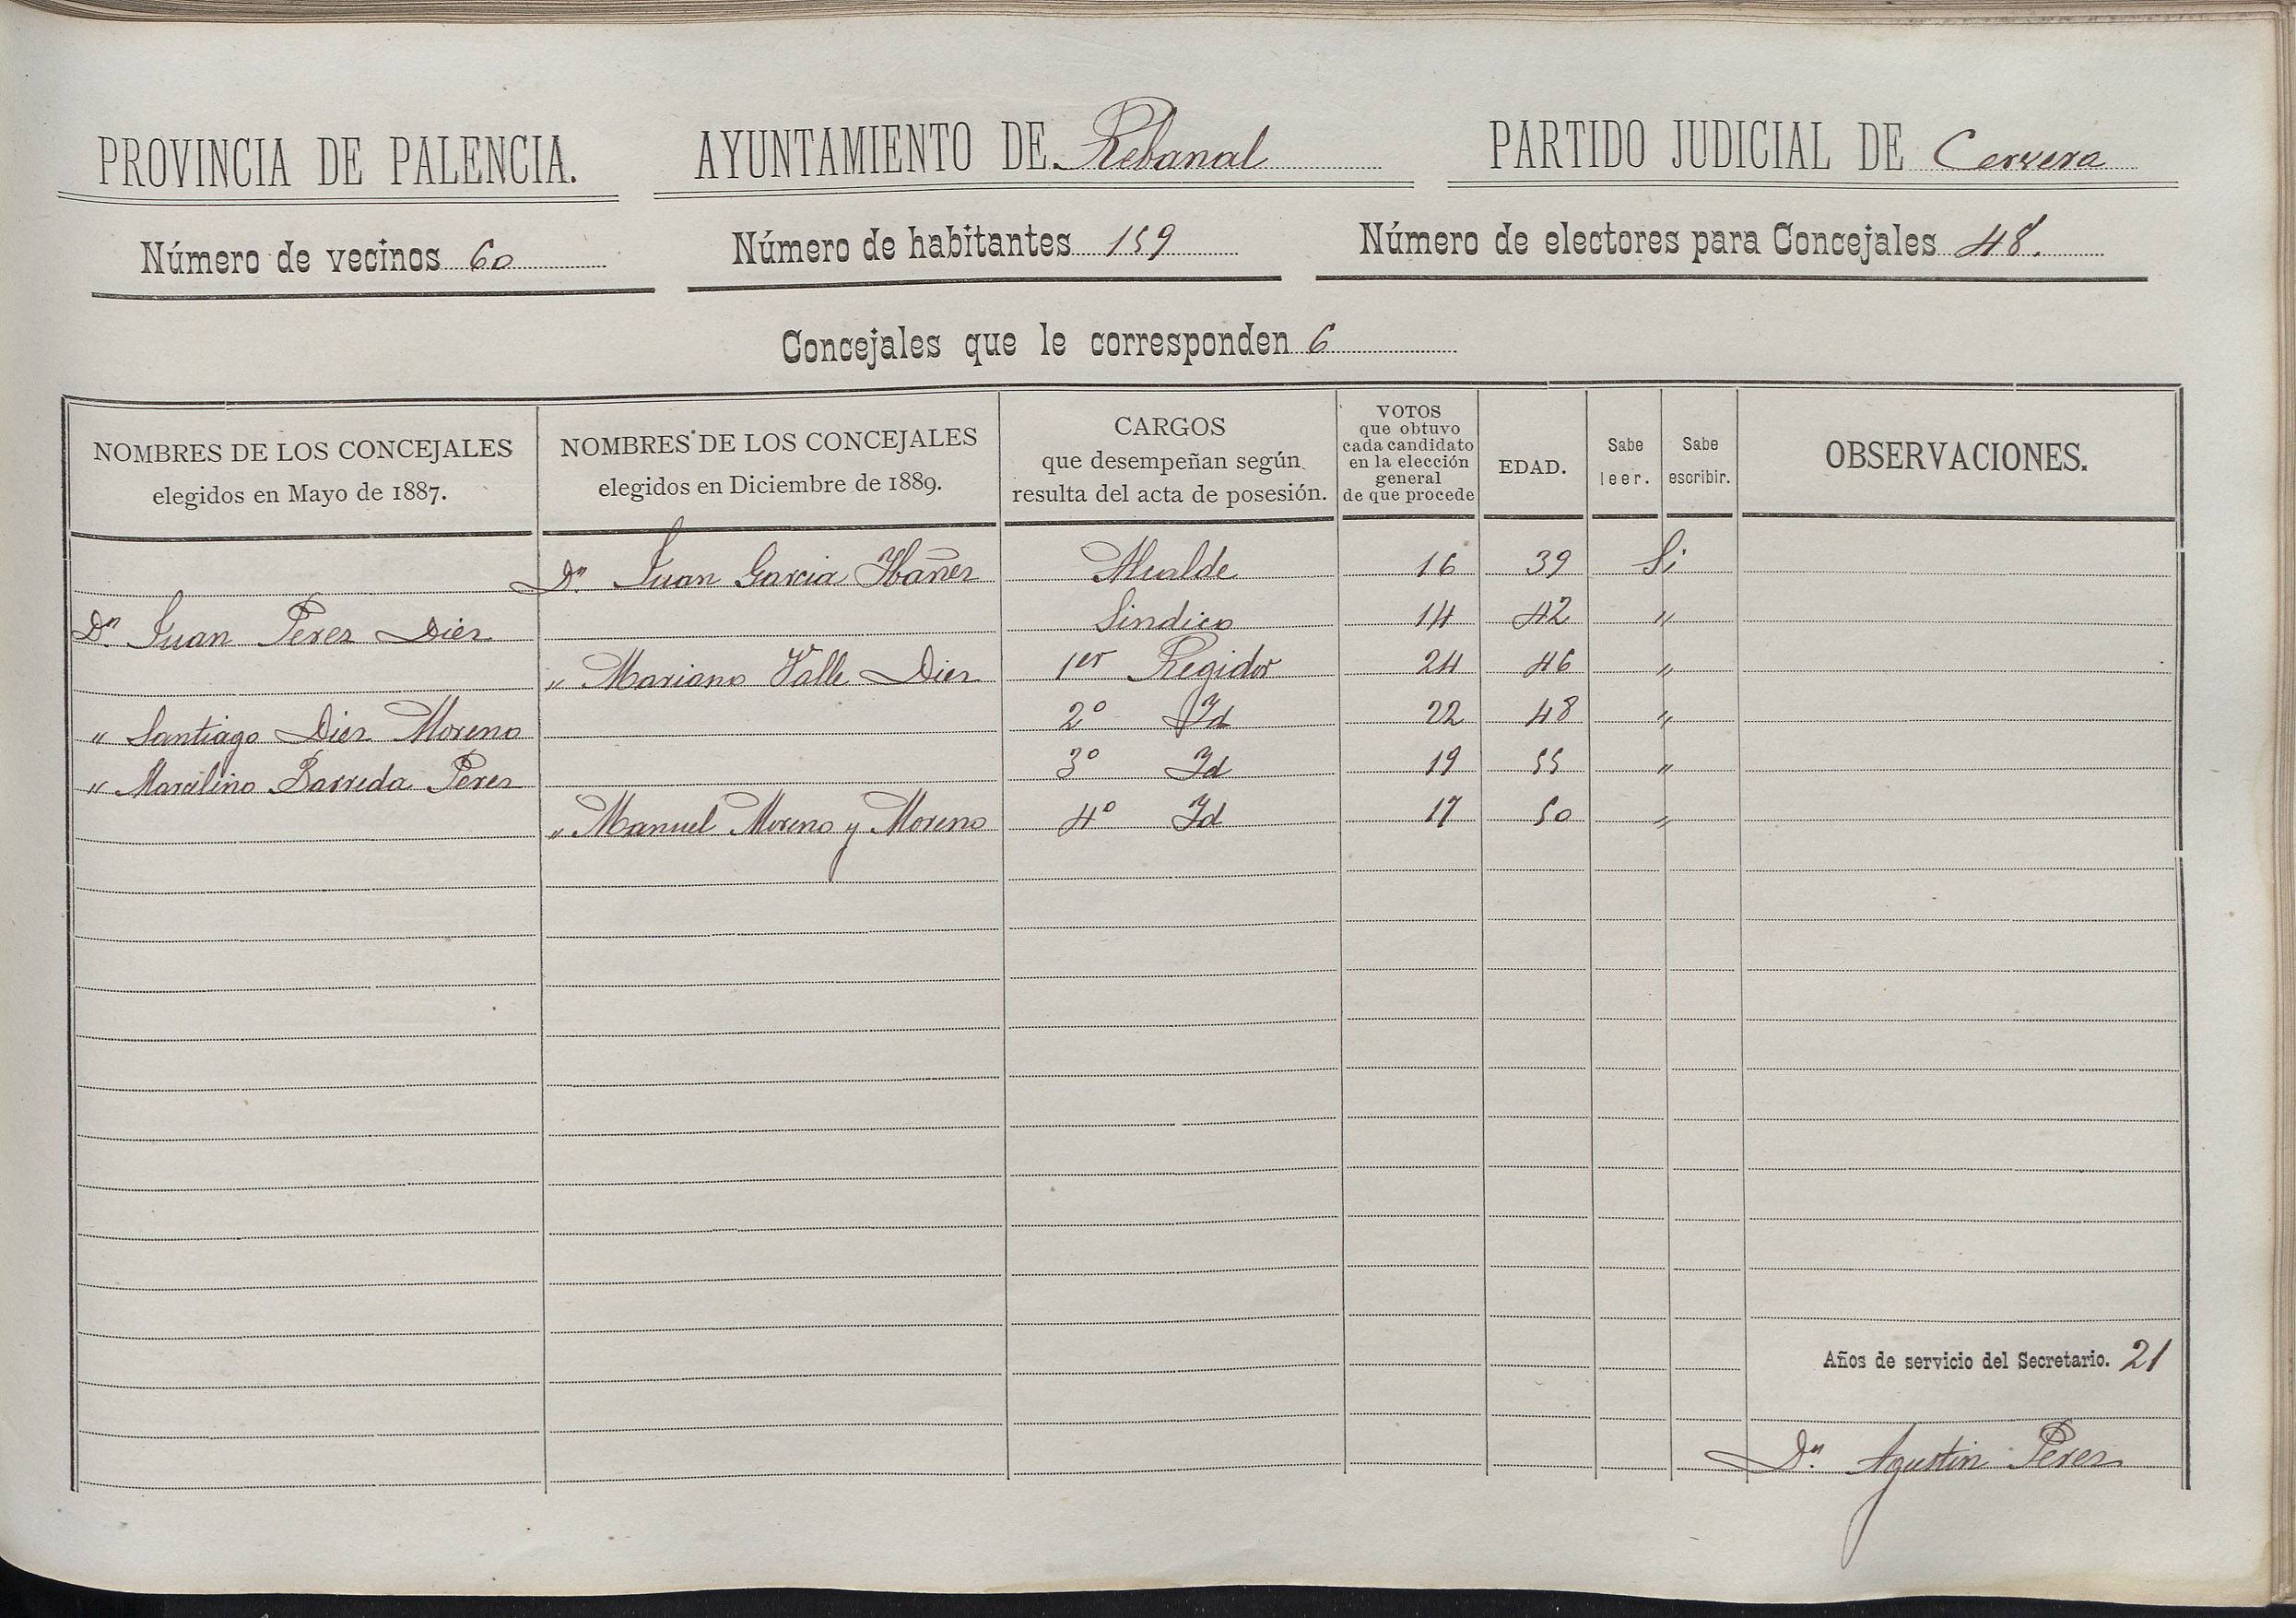 PROVINCIA DE PALENCIA. AYUNTAMIENTO DE Rebanal PARTIDO JUDICIAL DE Cervera
Número de vecinos 60 Número de habitantes 159 Número de electores para Concejales 48.
Concejales que le corresponden 6
NOMBRES DE LOS CONCEJALES
elegidos en Mayo de 1887.
NOMBRES DE LOS CONCEJALES
elegidos en Diciembre de 1889.
CARGOS
que desempeñan según
resulta del acta de posesión.
VOTOS
que obtuvo
cada candidato
en la elección
general
de que procede
EDAD.
Sabe
leer.
Sabe
escribir.
OBSERVACIONES.
Dn. Juan Garcia Ibañez Alcalde 16 39 Si
Dn. Juan Perez Diez Sindico 14 42 "
" Mariano Valle Diez 1er Regidor 24 46 "
" Santiago Diez Moreno 2º Id 22 48 "
" Marcelino Barreda Perez 3º Id 19 55 "
" Manuel Moreno y Moreno 4º Id 17 50 "
Años de servicio del Secretario. 21
Dn. Agustin Perez